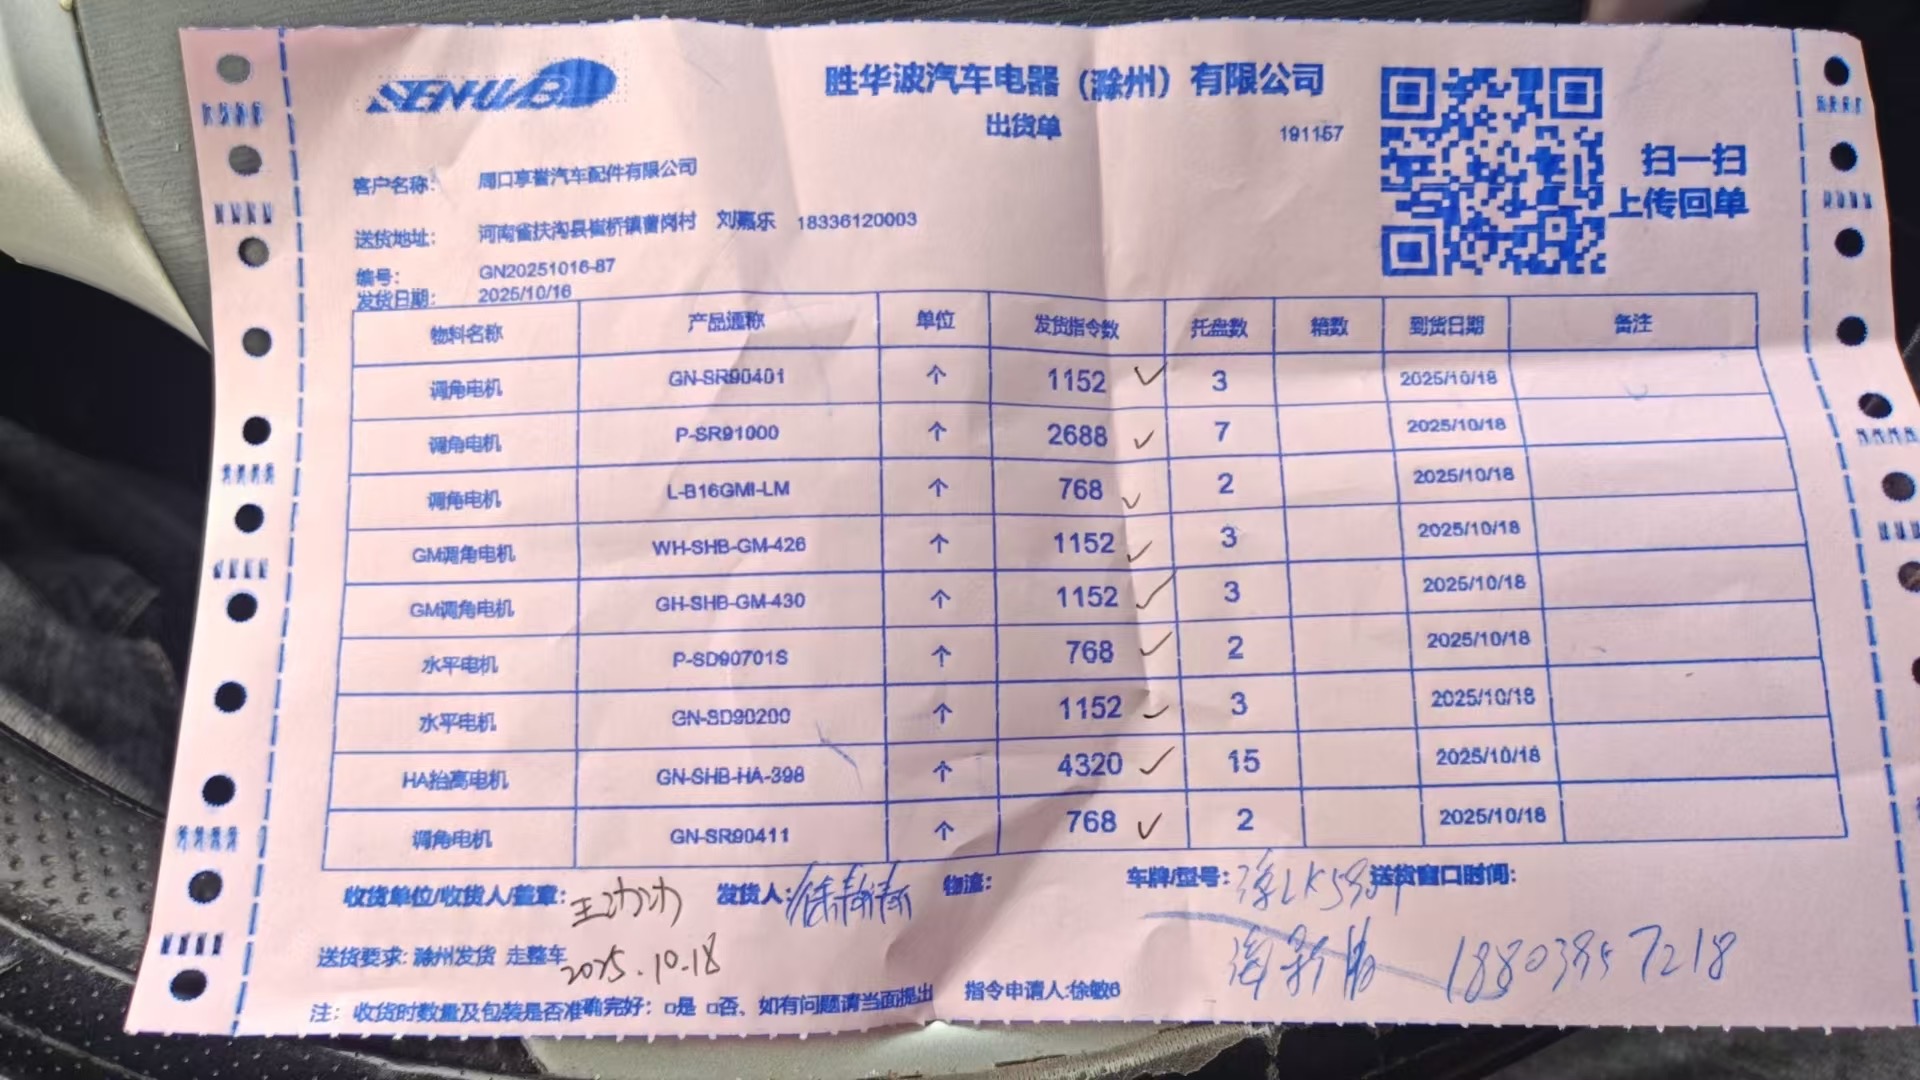 SENHUB
胜华波汽车电器（滁州）有限公司
出货单
191157
扫一扫
上传回单
客户名称： 周口享誉汽车配件有限公司
送货地址： 河南省扶沟县崔桥镇曹岗村 刘嘉乐 18336120003
编号： GN20251016-87
发货日期： 2025/10/16
物料名称 产品通称 单位 发货指令数 托盘数 箱数 到货日期 备注
调角电机 GN-SR90401 个 1152 ✓ 3 2025/10/18
调角电机 P-SR91000 个 2688 ✓ 7 2025/10/18
调角电机 L-B16GMI-LM 个 768 ✓ 2 2025/10/18
GM调角电机 WH-SHB-GM-426 个 1152 ✓ 3 2025/10/18
GM调角电机 GH-SHB-GM-430 个 1152 ✓ 3 2025/10/18
水平电机 P-SD90701S 个 768 ✓ 2 2025/10/18
水平电机 GN-SD90200 个 1152 ✓ 3 2025/10/18
HA抬高电机 GN-SHB-HA-398 个 4320 ✓ 15 2025/10/18
调角电机 GN-SR90411 个 768 ✓ 2 2025/10/18
收货单位/收货人/盖章： 发货人： 物流： 车牌/型号： 送货窗口时间：
送货要求: 滁州发货 走整车 2025.10.18
注： 收货时数量及包装是否准确完好；□是 □否、如有问题请当面提出 指令申请人:徐敏6